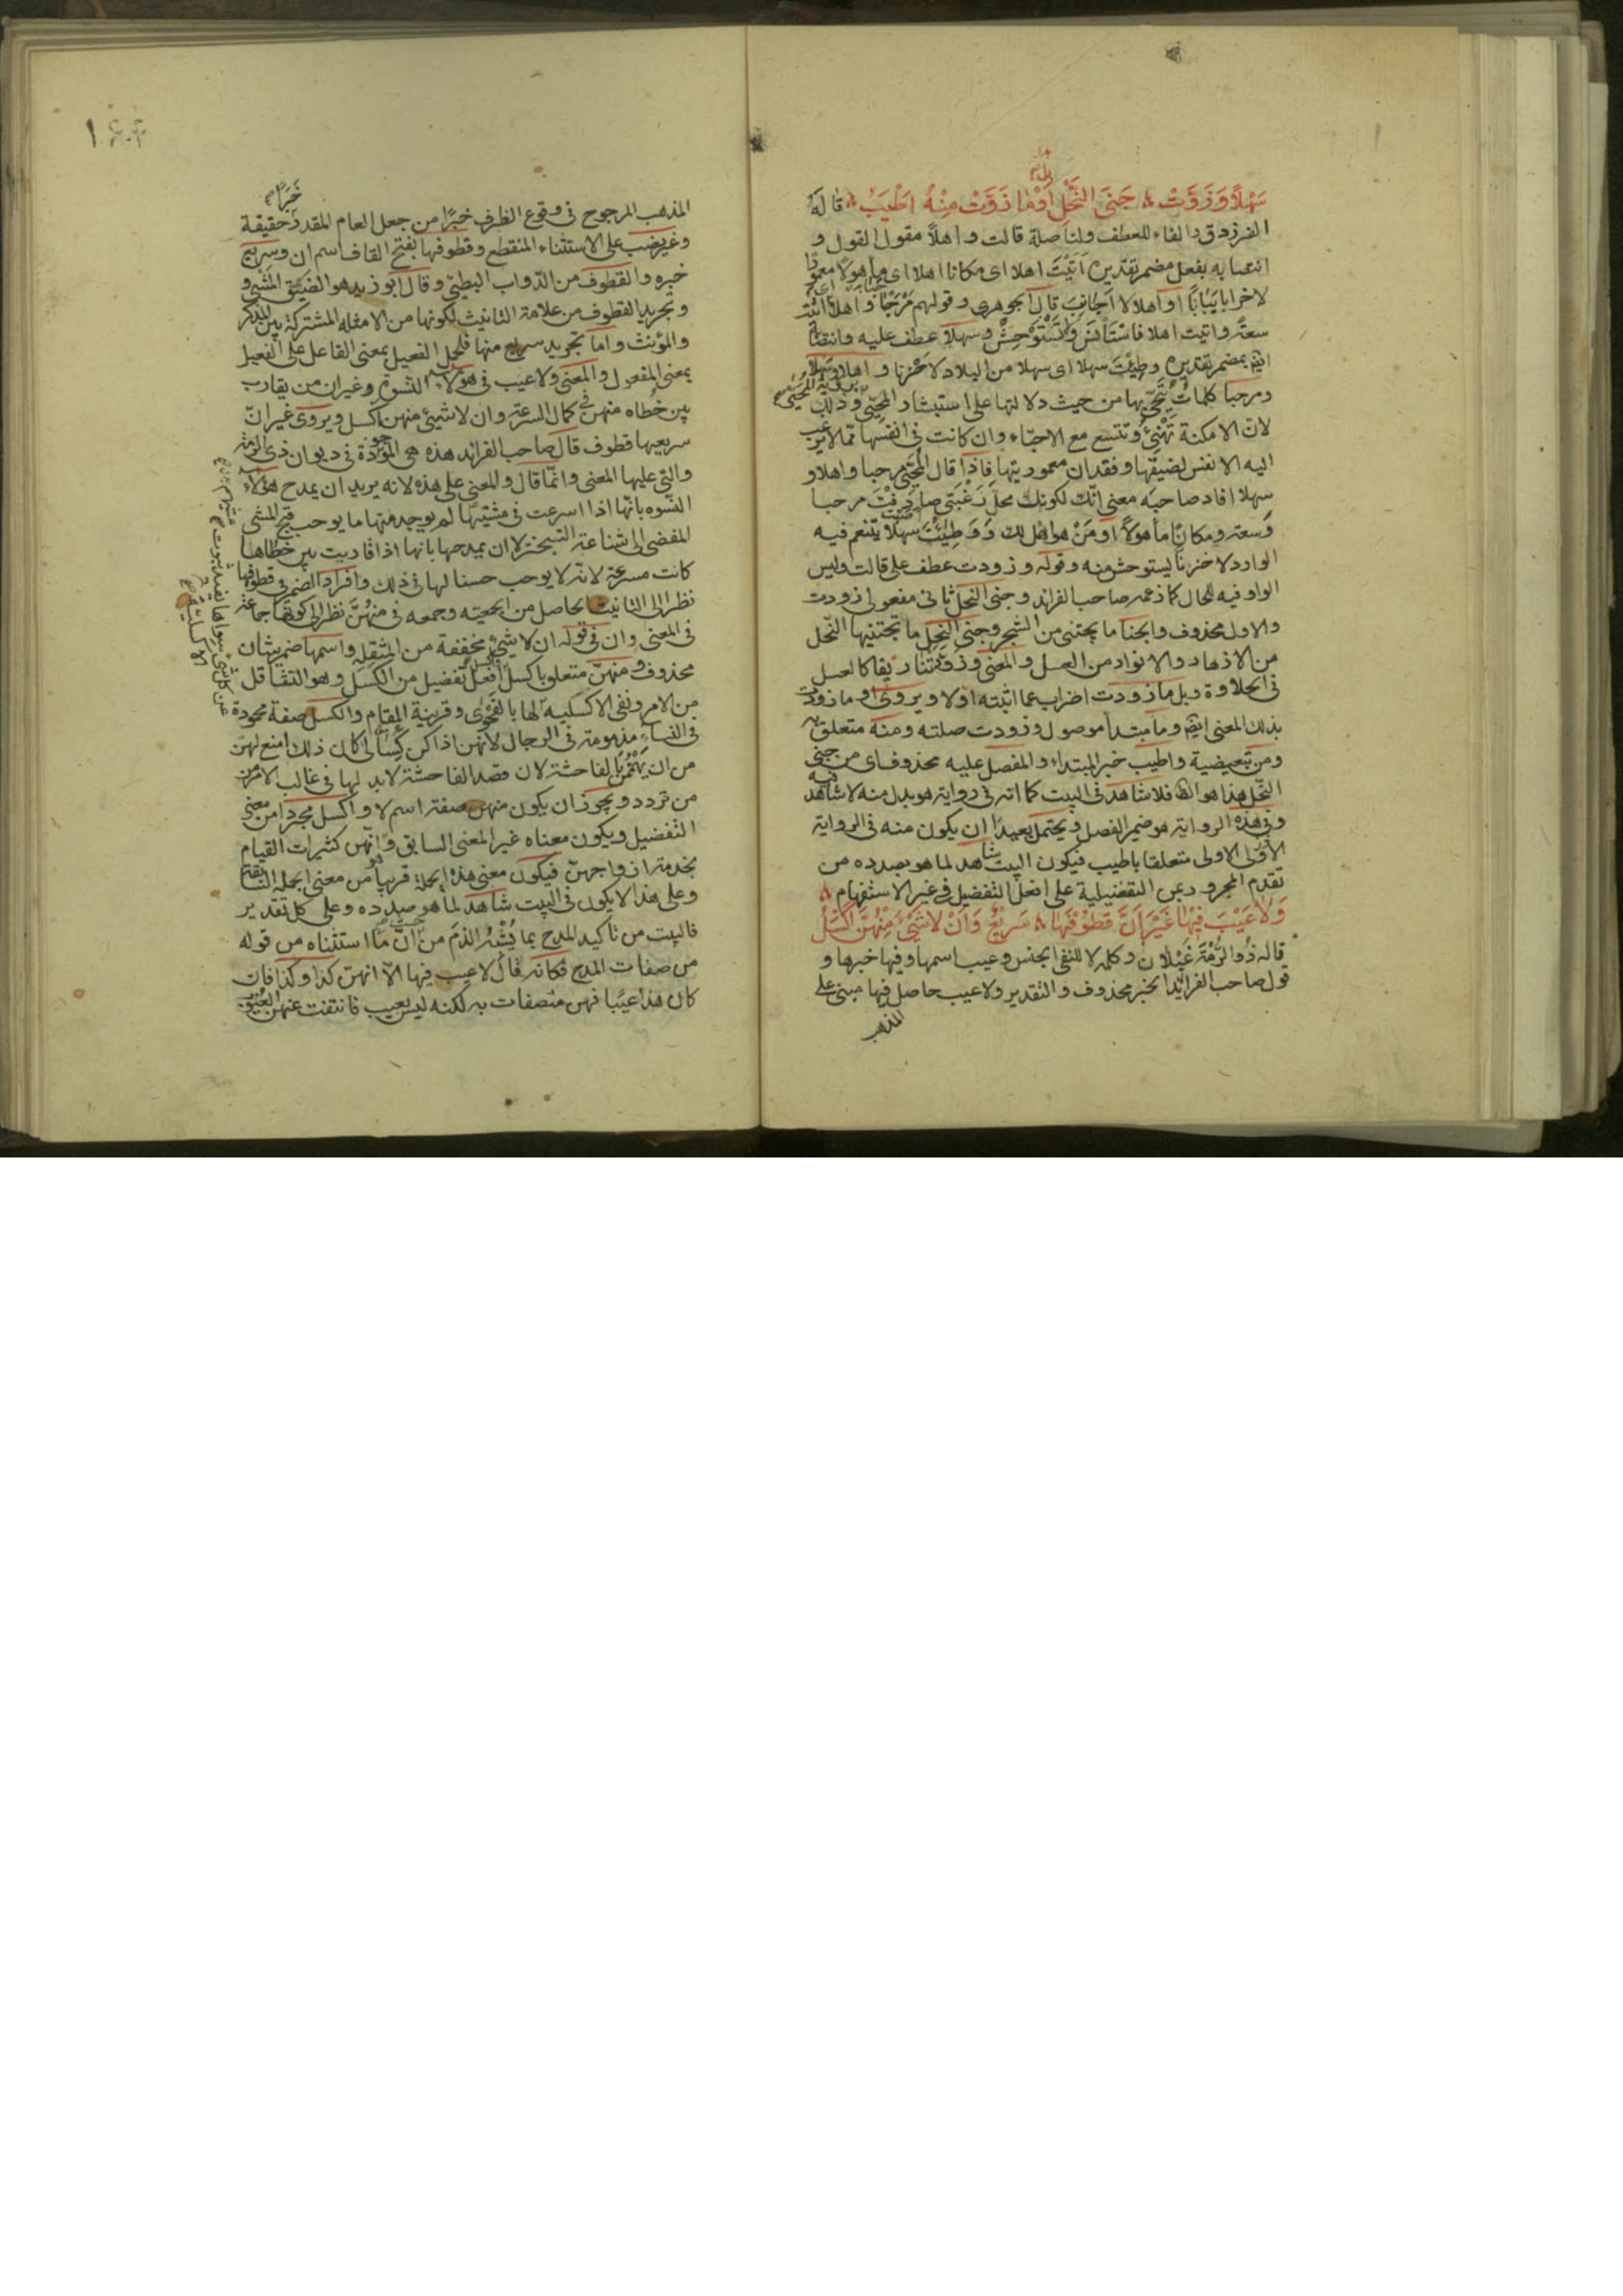 سَهْلًا وَزَوَّدَتْ جَنَى النَّحْلِ أَوْ مَا زَوَّدَتْ مِنْهُ أَطْيَبُ قاله
الفرزدق والفاء للعطف ولنا صلة قالت واهلا مقول القول و
انتصابه بفعل مضمر تقديره اتيت اهلا اى مكانا اهلا اى مأهولا معمورا
لا خرابا يبابا او اهلا لا اجانب قال الجوهرى وقولهم مرحبا واهلا اى اتيت
سعة واتيت اهلا فاستأنس ولا تستوحش وسهلا عطف عليه وانتصابه
ايضا بمضمر تقديره وطئت سهلا اى سهلا من البلاد لا حزنا و اهلا وسهلا
ومرحبا كلمات يحيى بها من حيث دلالتها على استبشار المحيى وذلك
لان الامكنة تهنئ وتتسع مع الاحباء وان كانت فى انفسها مما لا يرغب
اليه الانفس لضيقها وفقدان معموريتها فاذا قال المحيى مرحبا واهلا و
سهلا افاد صاحبه معنى انك لكونك محل رغبتى صادفت مرحبا
وسعة ومكانا مأهولا او من هو اهل لك ووطئت سهلا يتنعم فيه
الوارد لا حزنا ليستوحش منه وقوله وزودت عطف على قالت وليس
الواو فيه للحال كما زعمه صاحب الفرائد وجنى النحل ثانى مفعولى زودت
والاول محذوف والجنا ما يجتنى من الشجر وجنى النحل ما تجتنيها النحل
من الازهار والانوار من العسل والمعنى وزودتنا ريقا كالعسل
فى الحلاوة وبل ما زودت اضراب عما اثبته اولا ويروى او ما زودت
بذلك المعنى ايضا وما مبتدأ موصول وزودت صلته ومنه متعلق به
ومن تبعيضية واطيب خبر المبتداء والمفضل عليه محذوف اى من جنى
النحل هذا هو الظ فلا شاهد فى البيت كما انه فى رواية هو بدل منه لا شاهد فيه
وفى هذه الرواية هو ضمير الفصل ويحتمل بعيدا ان يكون منه فى الرواية
الاولى الاولى متعلقا باطيب فيكون البيت شاهد لما هو بصدده من
تقدم المجرور بمن التفضيلية على افعل التفضيل فى غير الاستفهام
وَلَا عَيْبَ فِيهَا غَيْرَ أَنَّ قَطُوفَهَا سَرِيعٌ وَأَنْ لَا شَيْءَ مِنْهُنَّ أَكْسَلُ
قاله ذو الرمة غيلان وكلمة لا للنفى الجنس وعيب اسمها وفيها خبرها و
قول صاحب الفرائد الخبر محذوف والتقدير ولا عيب حاصل فيها مبنى على
المذهب
خبرا
المذهب المرجوح فى وقوع الظرف خبرا من جعل العام المقدر حقيقة
وغير نصب على الاستثناء المنقطع وقطوفها بفتح القاف اسم ان وسريع
خبره والقطوف من الدواب البطئ وقال ابو زيد هو الضيق المشى و
وتجريد القطوف من علامة التانيث لكونها من الامثلة المشتركة بين المذكر
والمؤنث واما تجريد سريع منها فلحمل الفعيل بمعنى الفاعل على الفعيل
بمعنى المفعول والمعنى ولا عيب فى هؤلاء النسوة وغير ان من يقارب
بين خطاه منهن فى كمال السرعة وان لا شيئ منهن اكسل ويروى غير ان
سريعها قطوف قال صاحب الفرائد هذه هى الموجودة فى ديوان ذى الرمة
والتى عليها المعنى وانما قال والمعنى على هذه لانه يريد ان يمدح هؤلاء
النسوة بانها اذا اسرعت فى مشيتها لم يوجد منها ما يوجب قبح المشى
المفضى الى شناعة التبختر لا ان يمدحها بانها اذا قاربت بين خطاها
كانت مسرعة لانه لا يوجب حسنا لها فى ذلك وافراد الضمير فى قطوفها
نظر الى التانيث الحاصل من الجمعية وجمعه فى منهن نظر الى كونها جماعة
فى المعنى وان فى قوله ان لا شيئ مخففة من المثقلة واسمها ضمير شان
محذوف ومنهن متعلق باكسل افعل تفضيل من الكسل وهو التثاقل
من الامر ونفى الاكسلية لها بالفحوى وقرينة المقام والكسل صفة محمودة
فى النساء مذمومة فى الرجال لانهن اذا كن كسالى كان ذلك امنع لهن
من ان يهممن بالفاحشة لان قصد الفاحشة لا بد لها فى غالب الامر من
من تردد ويجوز ان يكون منهن صفة اسم لا واكسل مجردا من معنى
التفضيل ويكون معناه غير المعنى السابق وانهن كثيرات القيام
بخدمة ازواجهن فيكون معنى هذه الجملة قريبا من معنى الجملة السابقة
وعلى هذا لا يكون فى البيت شاهد لما هو بصدده وعلى كل تقدير
فالبيت من تاكيد المدح بما يشبه الذم من ان ما استثناه من قوله
من صفات المدح فكانه قال لا عيب فيها الا انهن كذا وكذا فان
كان هذا عيبا فهن متصفات به لكنه ليس بعيب فانتفت عنهن العيوب